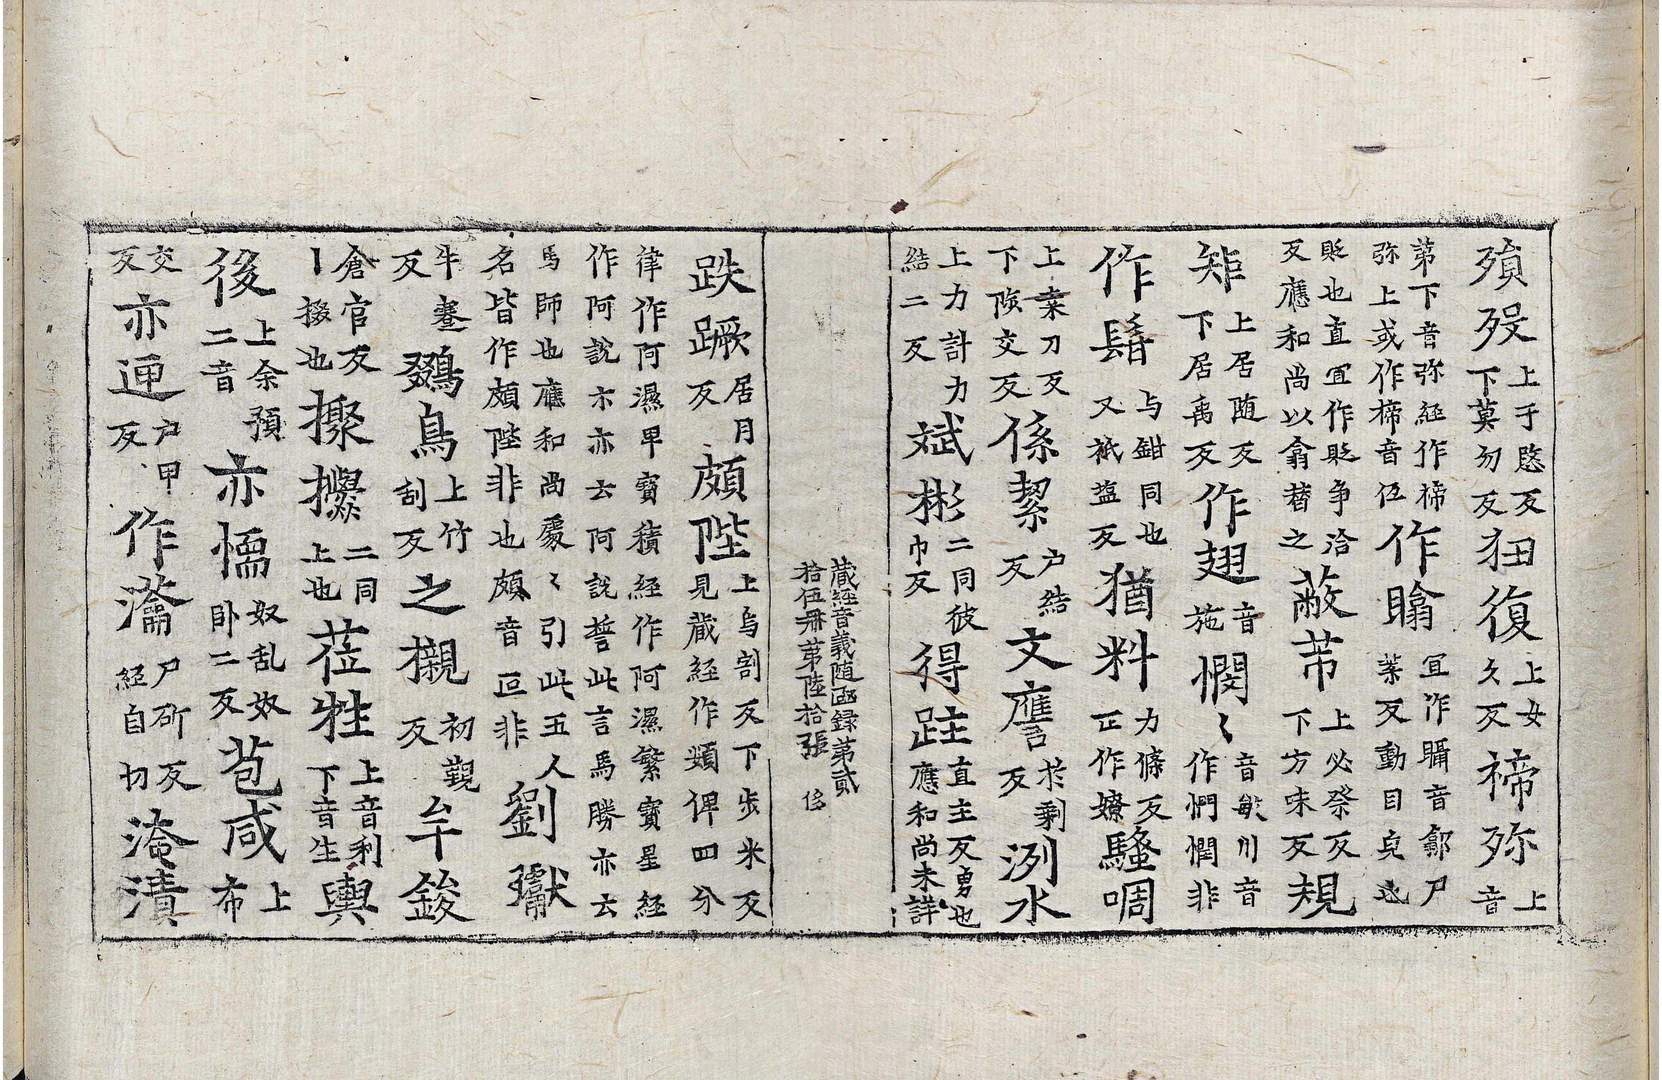 殞歿上于愍反下莫勿反狃復上女久反褅弥上音
第下音弥經作褅弥上或作褅音伍作瞈冝作䀹音鄒尸葉反動目皃也
貶也直冝作貶争洽反應和尚以翕替之蔽芾上必祭反下方味反規
矩上居随反下居禹反作翅音施憫〻音敏川音作惘憪非
作髯与鉗同也又袛塩反猶料力條反正作嫽騷啁
上桒刀反下陟交反係絜户結反文譍於剩反洌水
上力計力結二反斌彬二同彼巾反得跓直主反勇也應和尚未詳
藏經音義随函録第貳拾伍冊苐陸拾張
跌蹶居月反頗陛上烏割反下步米反見藏經作頞俾四分
律作阿濕卑寳積經作阿濕繁寳星經作阿說亦云阿說誓此言馬勝亦云
馬師也應和尚㲋〻引此五人名皆作頗陛非也頗音叵非劉瓛
牛蹇反鵽鳥上竹刮反之櫬初覲反牟鋑
倉官反丨掇也撡攥二同上也莅牲上音利下音生輿
後上余預二音亦愞奴乱奴卧二反苞咸上布
交反亦匣户甲反作㶜尸斫反經自切淹漬